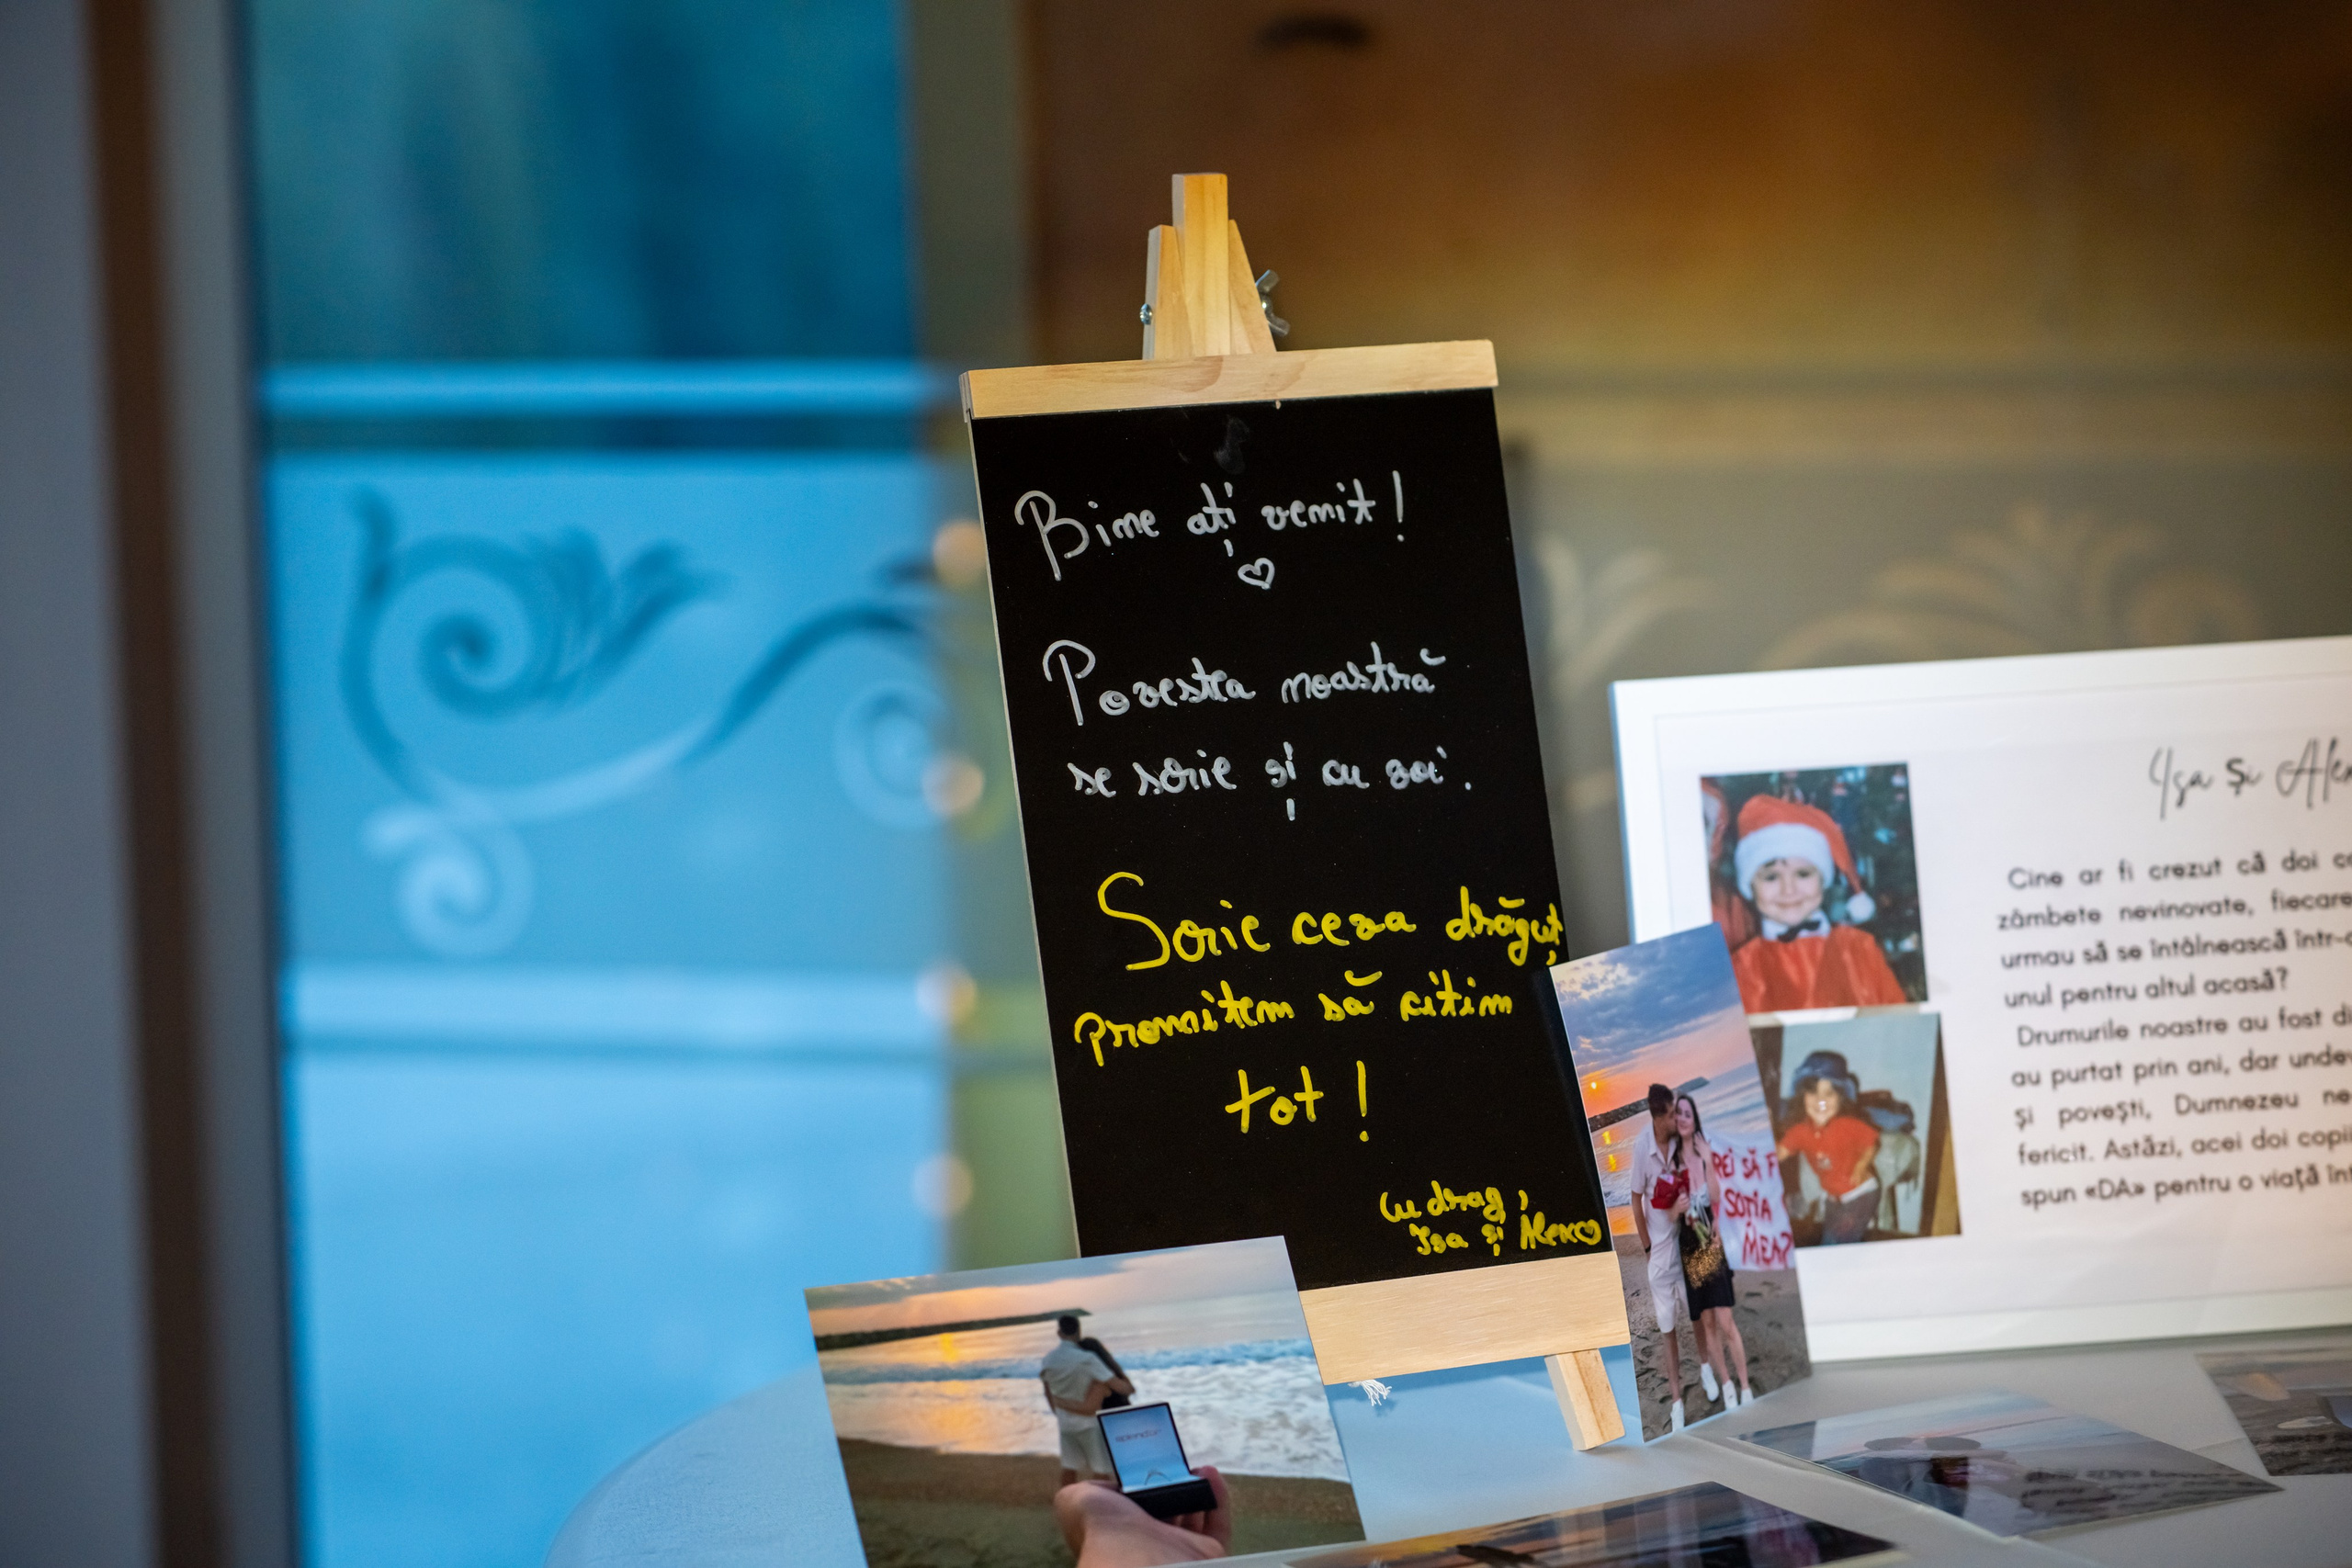 Bine ați venit!
Povestea noastră
se scrie și cu voi.
Scrie ceva drăguț,
promitem să citim
tot!
Cu drag,
Isa și Alex
Isa și Alex
Cine ar fi crezut că doi
zâmbete nevinovate, fiecare
urmau să se întâlnească într-
unul pentru altul acasă?
Drumurile noastre au fost
au purtat prin ani, dar
și povești, Dumnezeu ne
fericit. Astăzi, acei doi
spun «DA» pentru o viață
SĂ
SOȚIA
MEA?